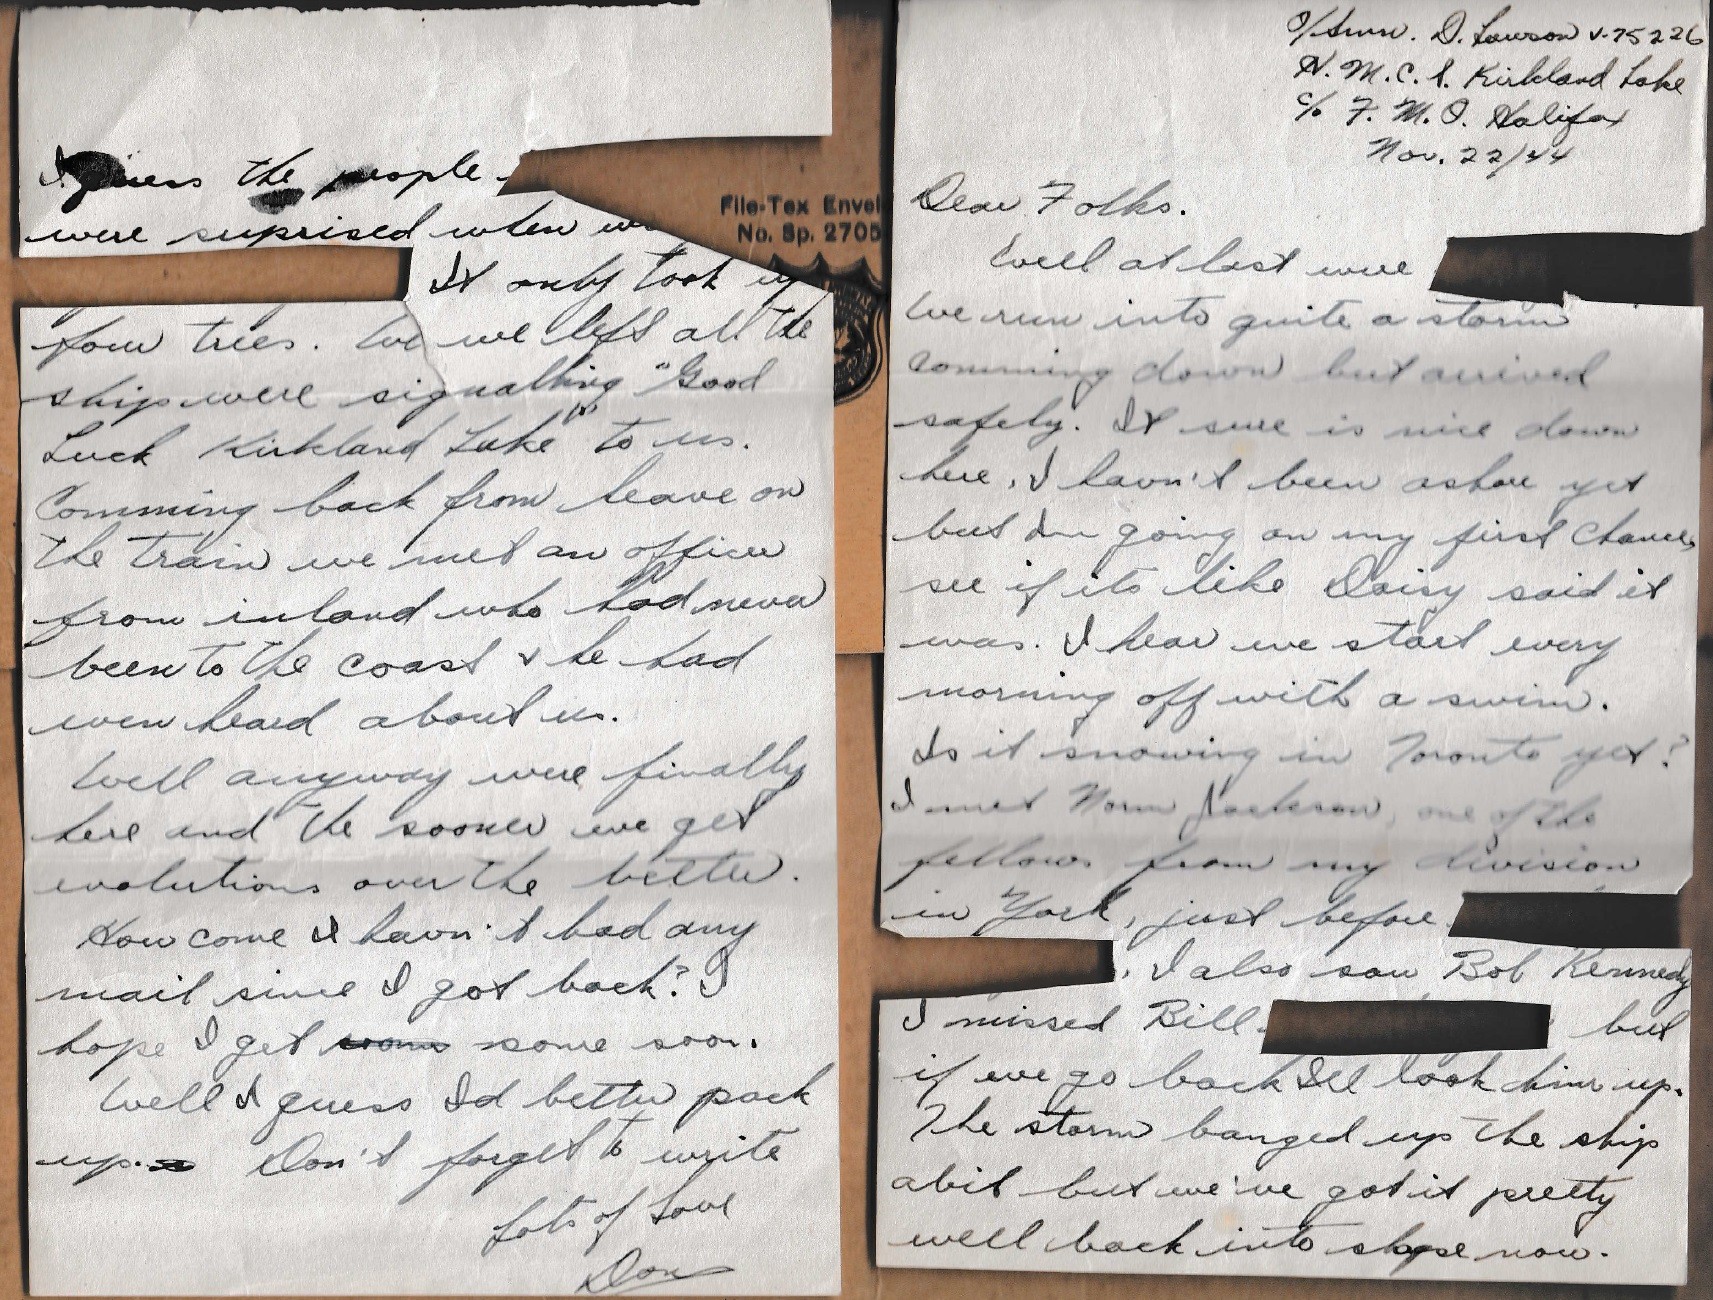 O/Smn. D. Lawson V-75226
H.M.C.S. Kirkland Lake
c/o F.M.O. Halifax
Nov. 22/44
Dear Folks.
Well at last were
We run into quite a storm
comming down but arrived
safely. It sure is nice down
here, I havn't been ashore yet
but Im going on my first chance
see if its like Daisy said it
was. I hear we start every
morning off with a swim.
Is it snowing in Toronto yet?
I met Norm Jackson, one of the
fellows from my division
in York, just before
. I also saw Bob Kennedy
I missed Bill but
if we go back Ill look him up.
The storm banged up the ship
abit but we've got it pretty
well back into shape now.
I guess the people
were suprised when
It only took up
four trees. we left all the
ship were signalling "Good
Luck Kirkland Lake" to us.
Comming back from leave on
the train we met an officer
from inland who had never
been to the coast & he had
even heard about us.
Well anyway were finally
here and the sooner we get
evolutions over the better.
How come I havn't had any
mail since I got back? I
hope I get some soon.
Well I guess Id better pack
up. Don't forget to write
Lots of Love
Don
File-Tex Envel
No. Sp. 2705